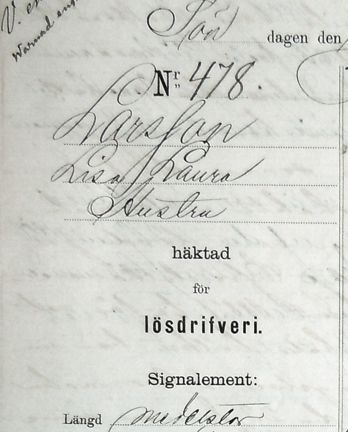 Sön dagen den
Nr 478.
Larsson
Lisa Laura
häktad
för
lösdrifveri.
Signalement:
Längd medelstor